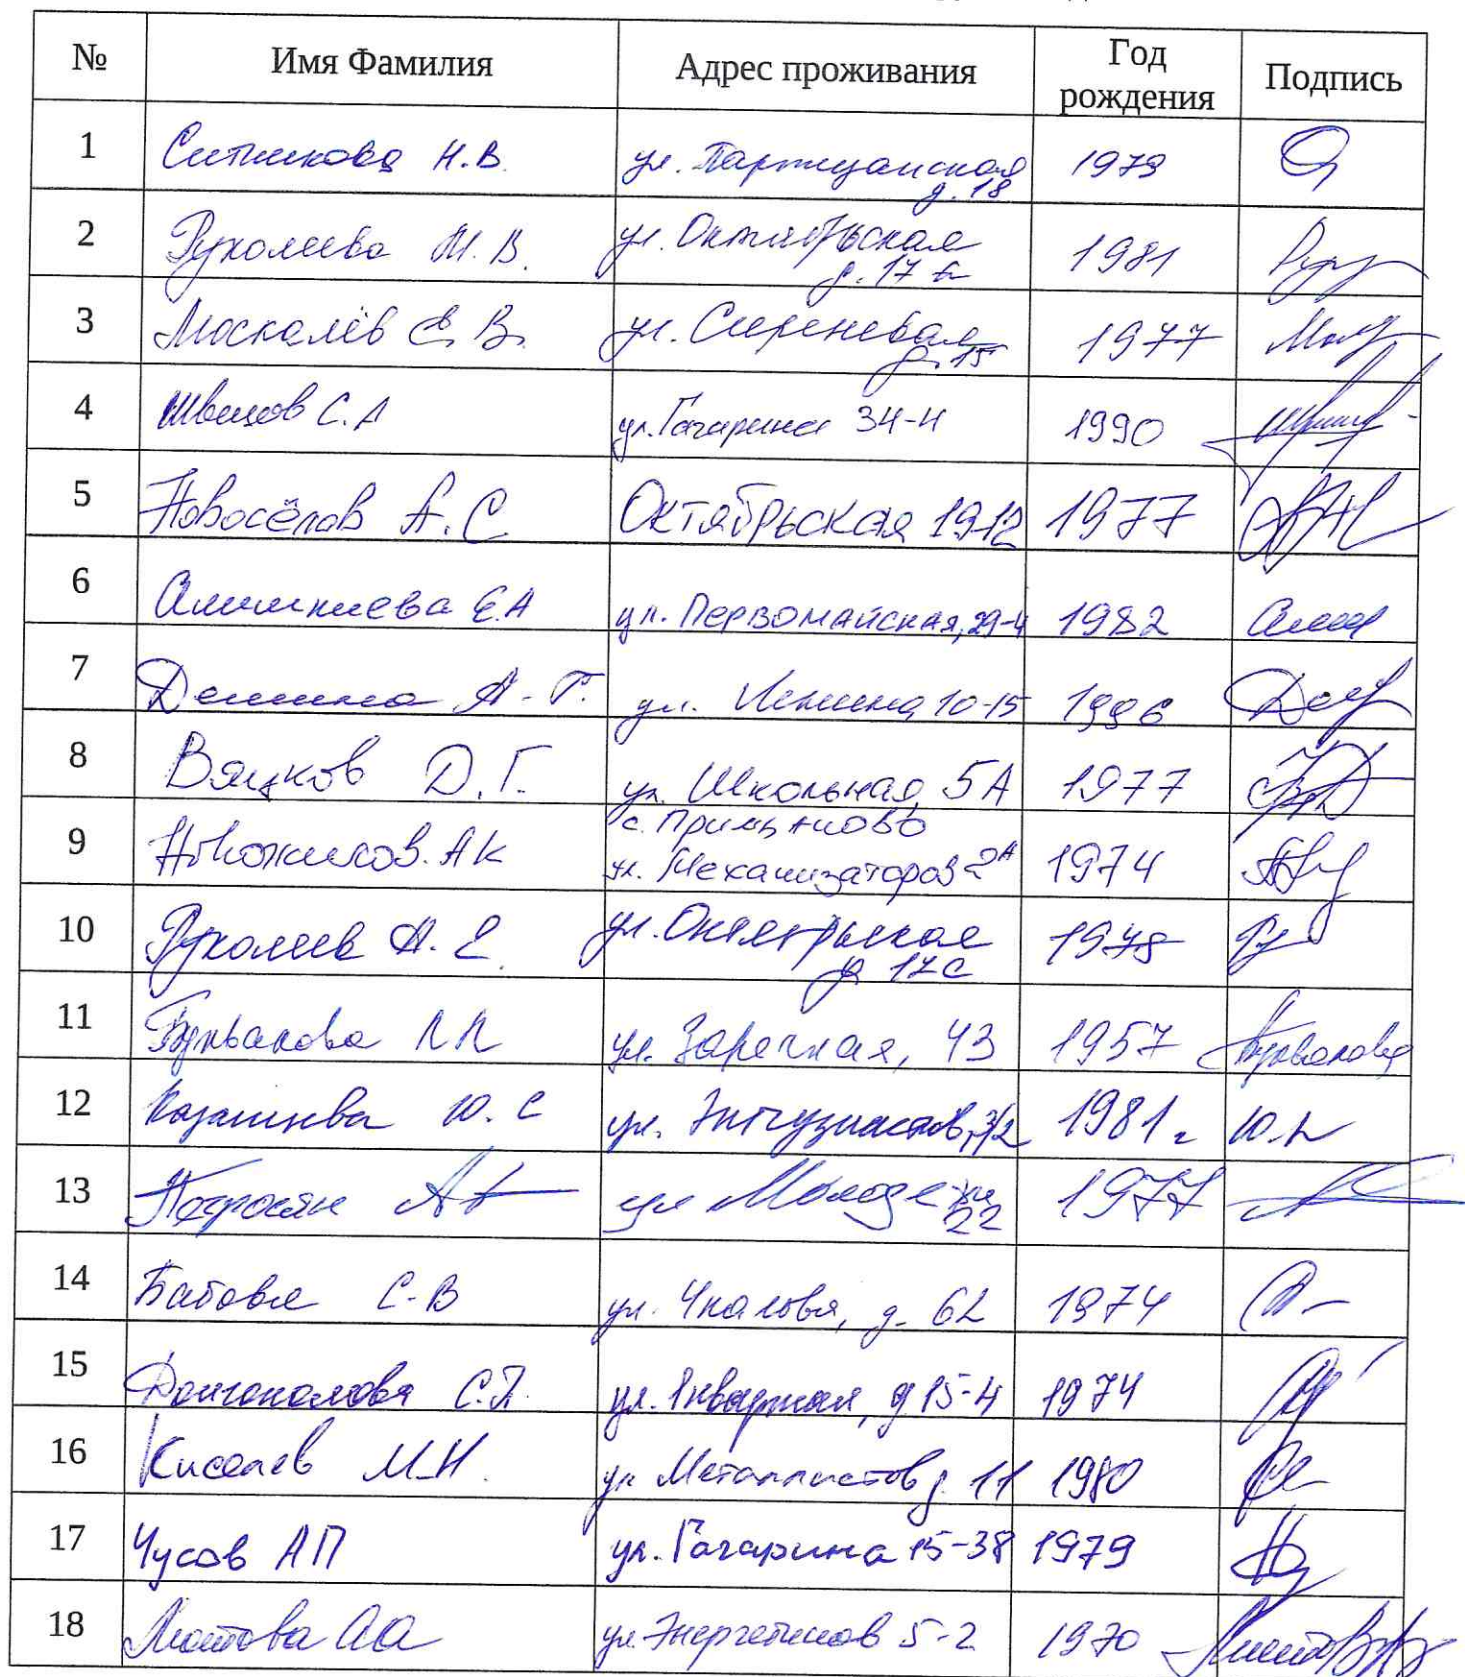 № Имя Фамилия Адрес проживания Год рождения Подпись
1 Ситникова Н.В. ул. Партизанская д. 18 1979
2 Руколеева М.В. ул. Октябрьская д. 17 а 1981
3 Москалёв Е.В. ул. Сиреневая д. 15 1977
4 Швецов С.А ул. Гагарина 34-4 1990
5 Новосёлов А.С. Октябрьская 19-12 1977
6 Е.А ул. Первомайская, 29-4 1982
7 Демина А.Г. ул. Ленина, 10-15 1996
8 Вяцков Д.Г. ул. Школьная, 5А 1977
9 Новожилов А К с. ул. Механизаторов 2А 1974
10 Руколеев А.Е. ул. Октябрьская д. 17 1978
11 ул. Заречная, 43 1957
12 Казанцева Ю.С ул. Энтузиастов, 3/2 1981 г
13 Петросян А ул 22 1977
14 Бабовя С.В ул. Чкалова, д. 62 1974
15 С.П. ул. д 15-4 1974
16 Киселев М.Н. ул Металлистов д. 11 1980
17 Чусов АП ул. Гагарина 15-38 1979
18 АА ул. Энергетиков 5-2 1970